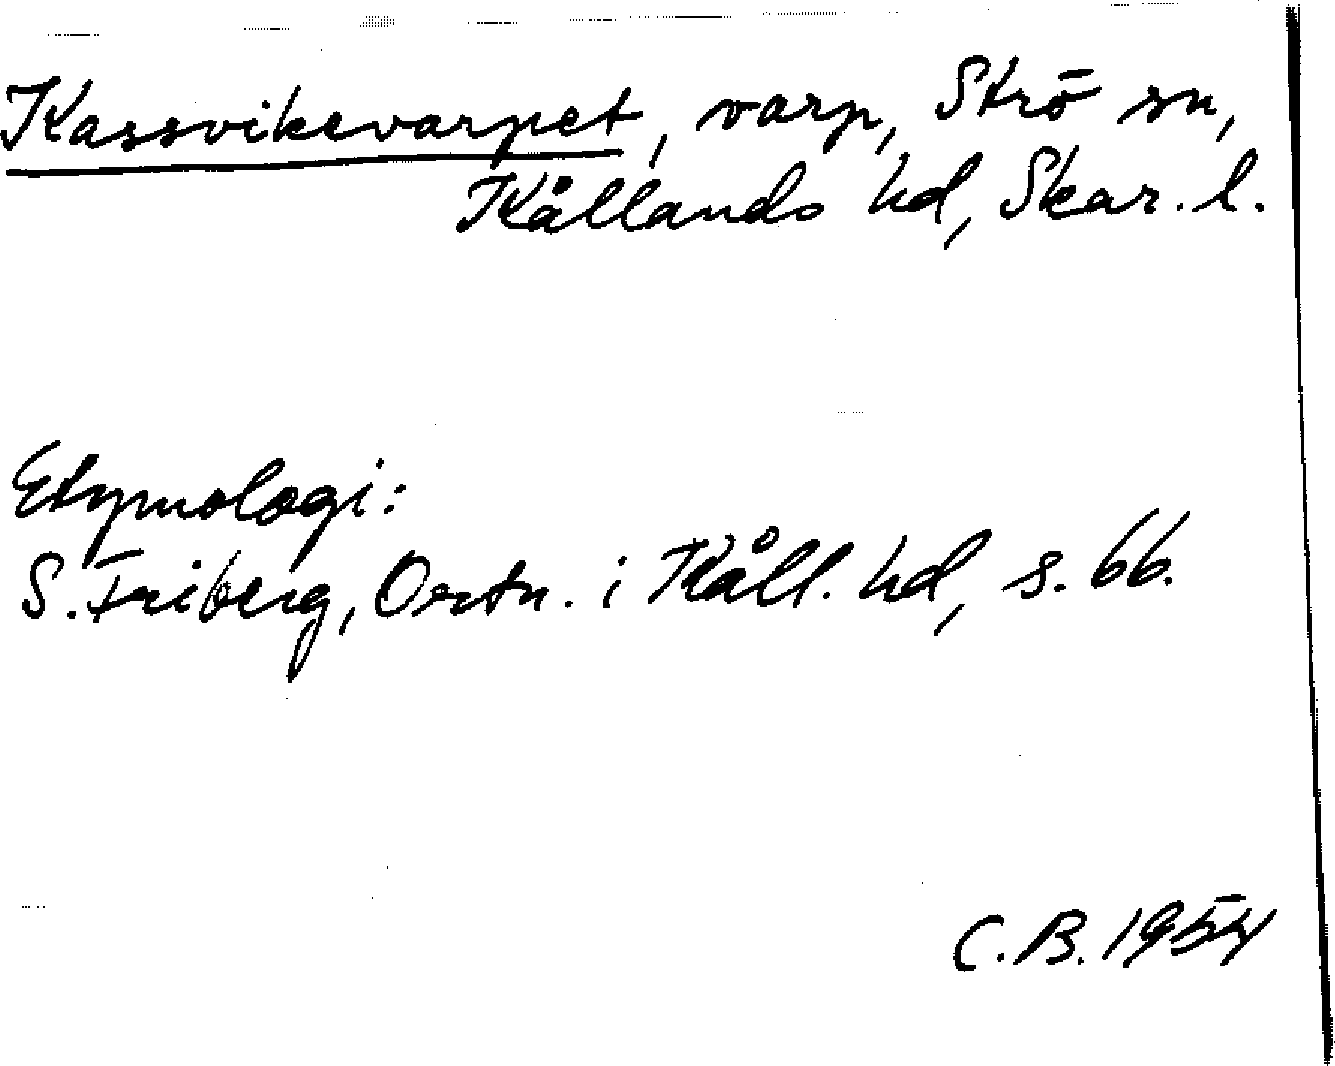 Kassvikevarpet, varp, Strö sn,
Kållands hd, Skar. l.
Etymologi:
S. Friberg, Ortn. i Kåll. hd, s. 66.
C. B. 1954